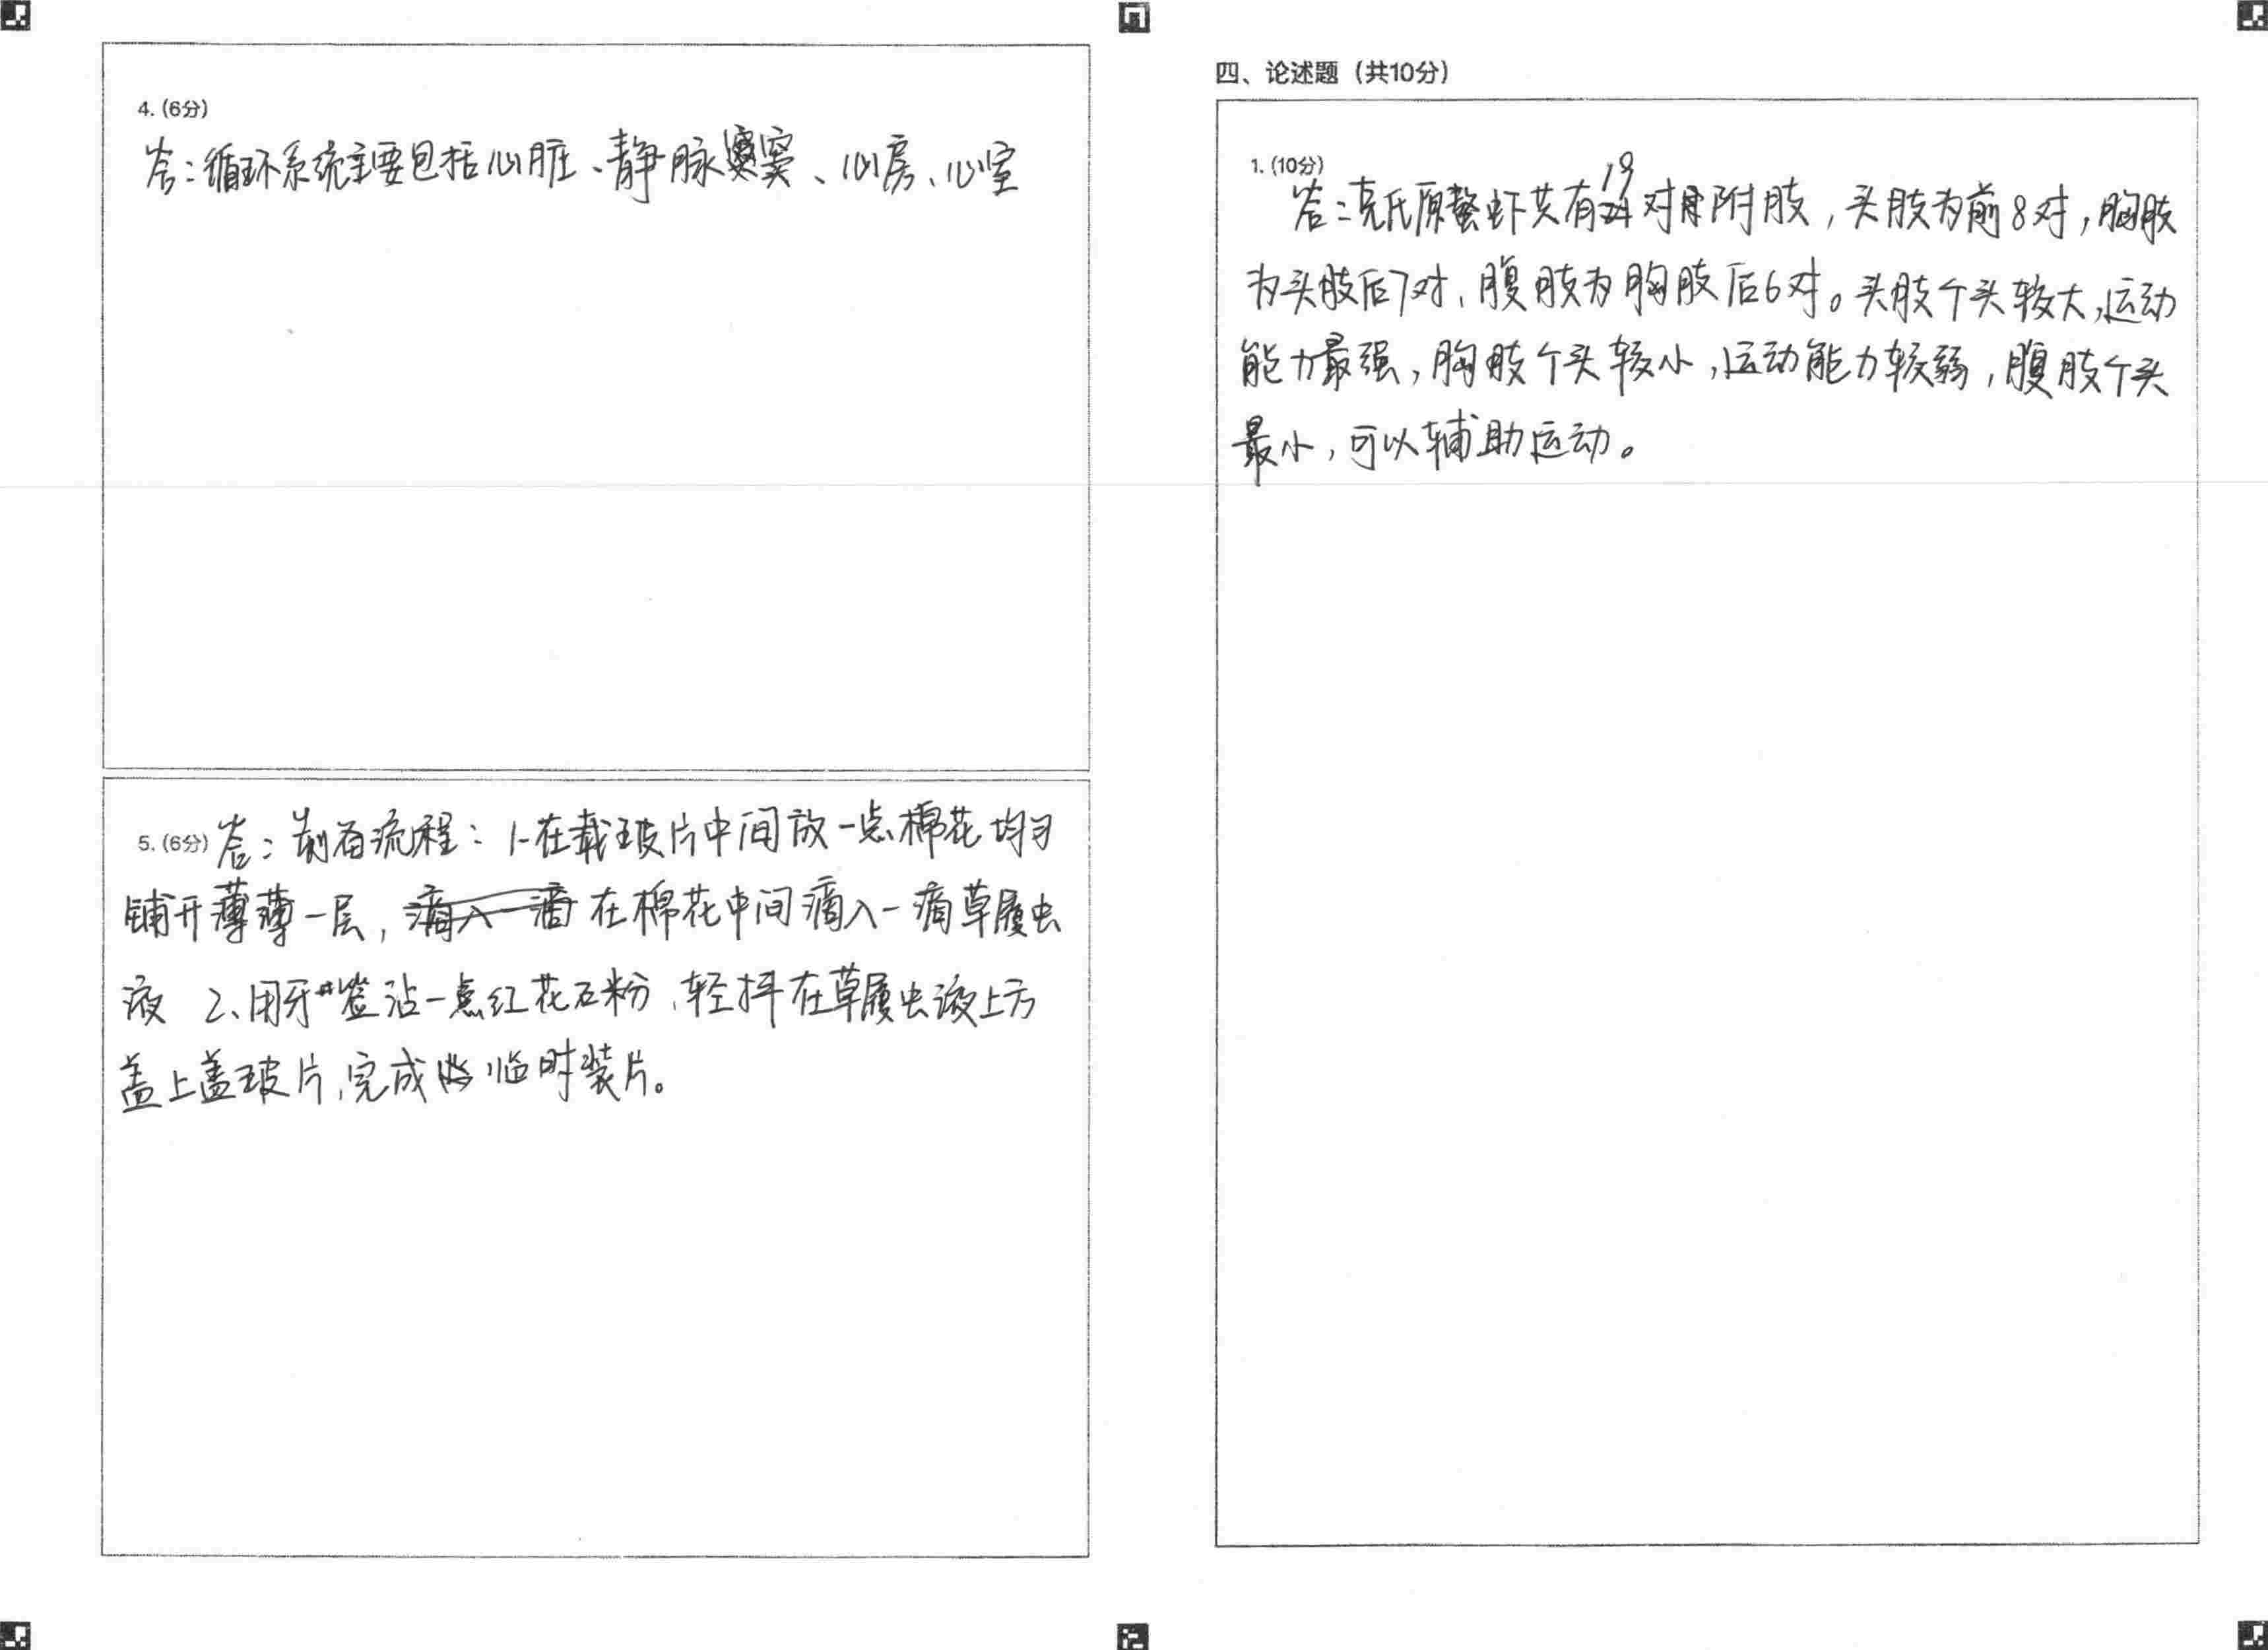 4. (6分)
答：循环系统主要包括心脏、静脉窦、心房、心室
5. (6分) 答：制备流程：1.在载玻片中间放一点棉花均匀
铺开薄薄一层，在棉花中间滴入一滴草履虫
液 2、用牙签沾一点红花石粉，轻抖在草履虫液上方
盖上盖玻片，完成临时装片。
四、论述题（共10分）
1. (10分)
答：克氏原螯虾共有19对附肢，头肢为前8对，胸肢
为头肢后7对，腹肢为胸肢后6对。头肢个头较大，运动
能力最强，胸肢个头较小，运动能力较弱，腹肢个头
最小，可以辅助运动。